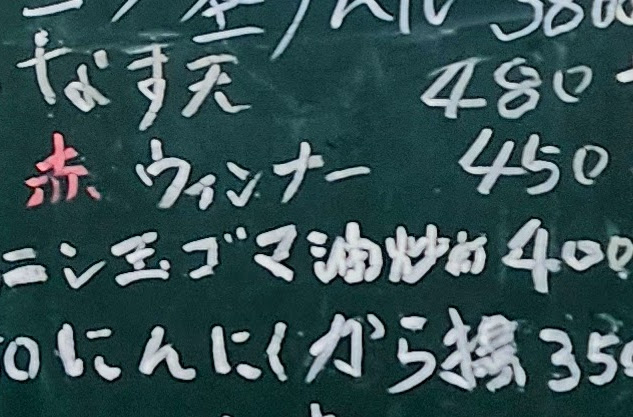 なす天 480
赤ウィンナー 450
ニン玉ゴマ油炒め 400
にんにくから揚 350